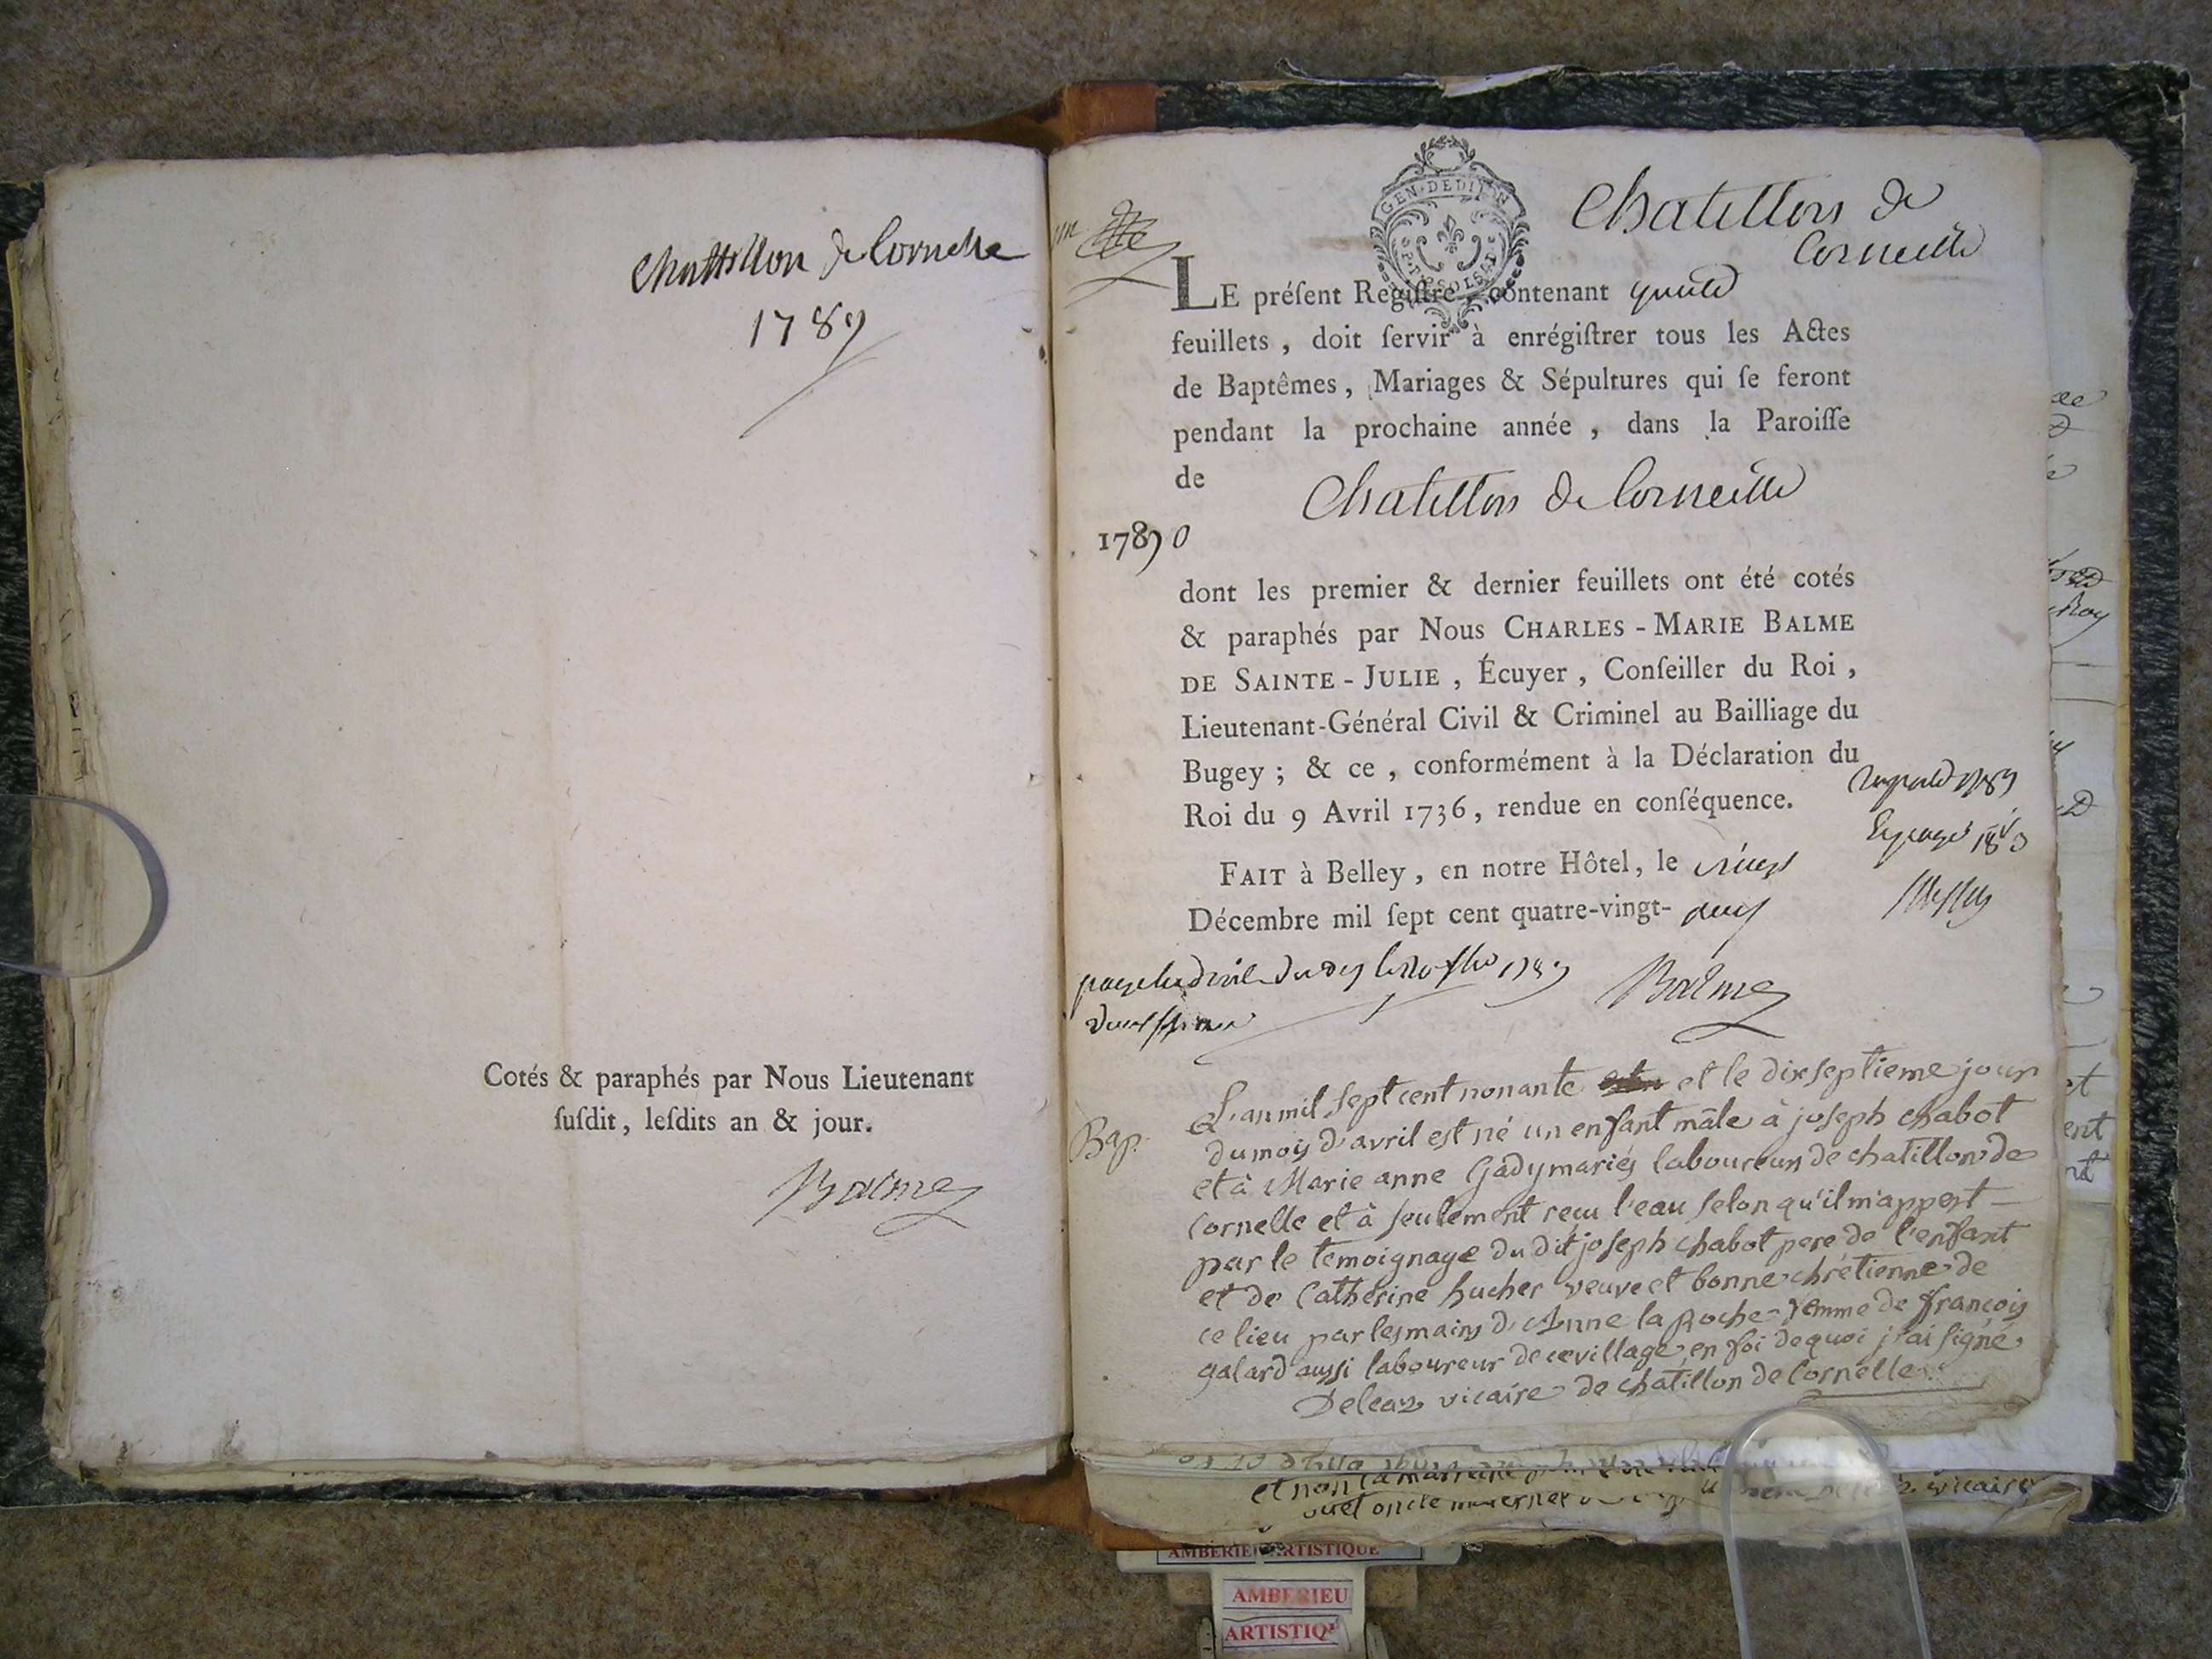 Chattillon de Cornelle
1789
Cotés & paraphés par Nous Lieutenant
ſuſdit, leſdits an & jour.
Balme
GEN. DE DIJON
Chatillon de
Corneille
LE préſent Regiſtre, contenant quatre
feuillets, doit ſervir à enrégiſtrer tous les Actes
de Baptêmes, Mariages & Sépultures qui ſe feront
pendant la prochaine année, dans la Paroiſſe
de
Chatillon de Corneille
1789 0
dont les premier & dernier feuillets ont été cotés
& paraphés par Nous CHARLES-MARIE BALME
DE SAINTE-JULIE, Écuyer, Conſeiller du Roi,
Lieutenant-Général Civil & Criminel au Bailliage du
Bugey; & ce, conformément à la Déclaration du
Roi du 9 Avril 1736, rendue en conſéquence.
FAIT à Belley, en notre Hôtel, le vingt
Décembre mil ſept cent quatre-vingt- neuf
1789
Balme
Bap.
L'an mil sept cent nonante et le dixseptieme jour
du mois d'avril est né un enfant mâle à joseph chabot
et à Marie anne Gady mariés laboureurs de chatillon de
Cornelle et à seulement recu l'eau selon qu'il m'appert
par le temoignage du dit joseph chabot pere de l'enfant
et de Catherine hucher veuve et bonne chrétienne de
ce lieu par les mains d'Anne la Roche femme de françois
galard aussi laboureur de ce village en foi de quoi j'ai signé
Deleaz vicaire de chatillon de Cornelle
et non la marreine
vicaire
AMBERIEU ARTISTIQUE
AMBERIEU
ARTISTIQ